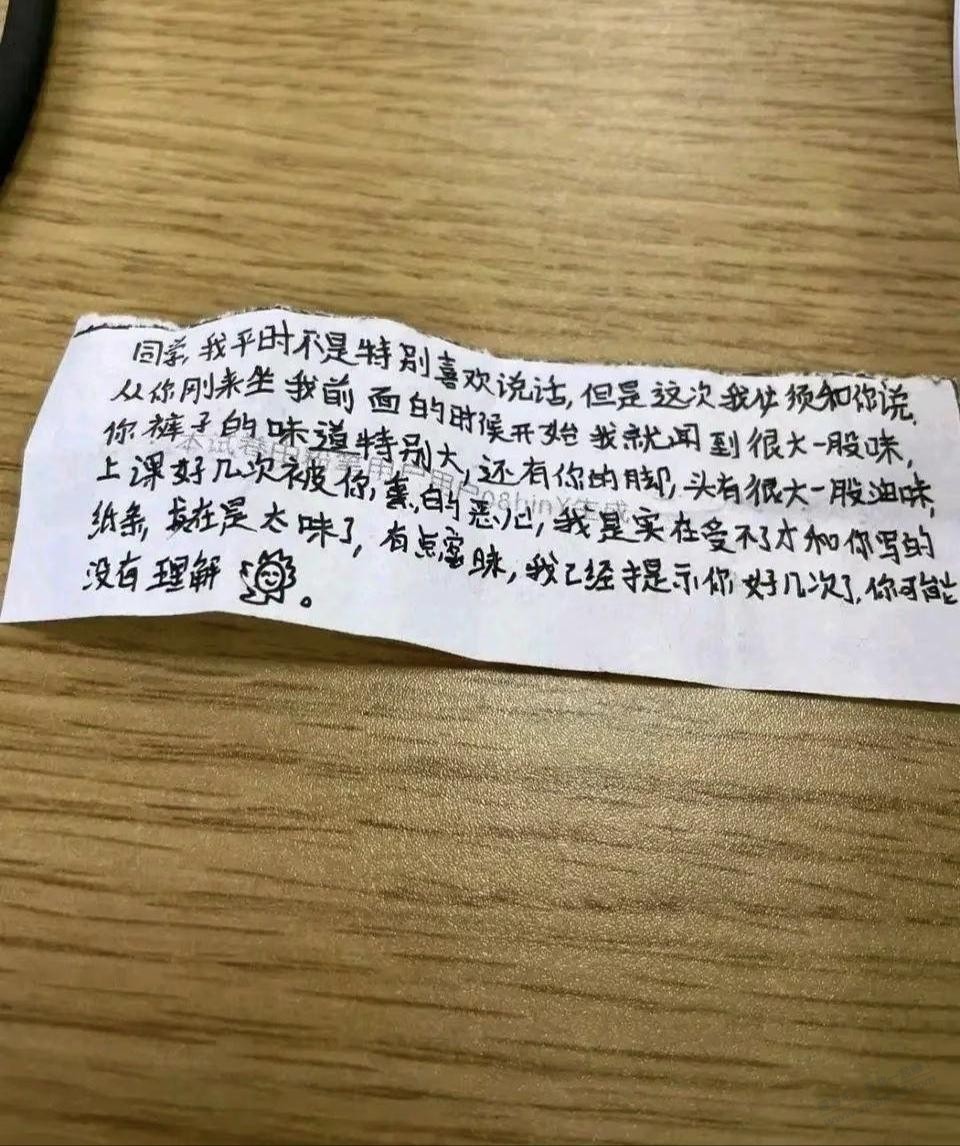 同学,我平时不是特别喜欢说话,但是这次我必须和你说.
从你刚来坐我前面的时候开始我就闻到很大一股味,
你裤子的味道特别大,还有你的脚,头有很大一股油味,
上课好几次被你,熏,的恶心,我是实在受不了才和你写的
纸条,真在是太味了,有点窒味,我已经提示你好几次了,你可能
没有理解。